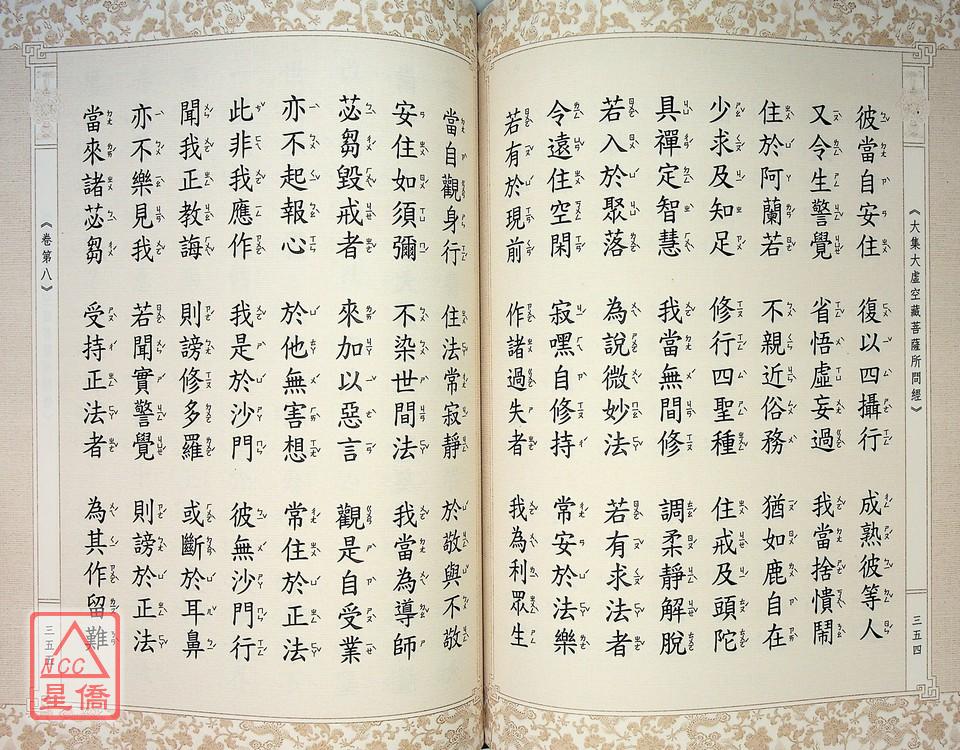 《大集大虛空藏菩薩所問經》
三五四
彼當自安住 復以四攝行 成熟彼等人
又令生警覺 省悟虛妄過 我當捨憒鬧
住於阿蘭若 不親近俗務 猶如鹿自在
少求及知足 修行四聖種 住戒及頭陀
具禪定智慧 我當無間修 調柔靜解脫
若入於聚落 為說微妙法 若有求法者
令遠住空閑 寂嘿自修持 常安於法樂
若有於現前 作諸過失者 我為利眾生
當自觀身行 住法常寂靜 於敬與不敬
安住如須彌 不染世間法 我當為導師
苾芻毀戒者 來加以惡言 觀是自受業
亦不起報心 於他無害想 常住於正法
此非我應作 我是於沙門 彼無沙門行
聞我正教誨 則謗修多羅 或斷於耳鼻
亦不樂見我 若聞實警覺 則謗於正法
當來諸苾芻 受持正法者 為其作留難
《卷第八》
三五五
NCC
星僑